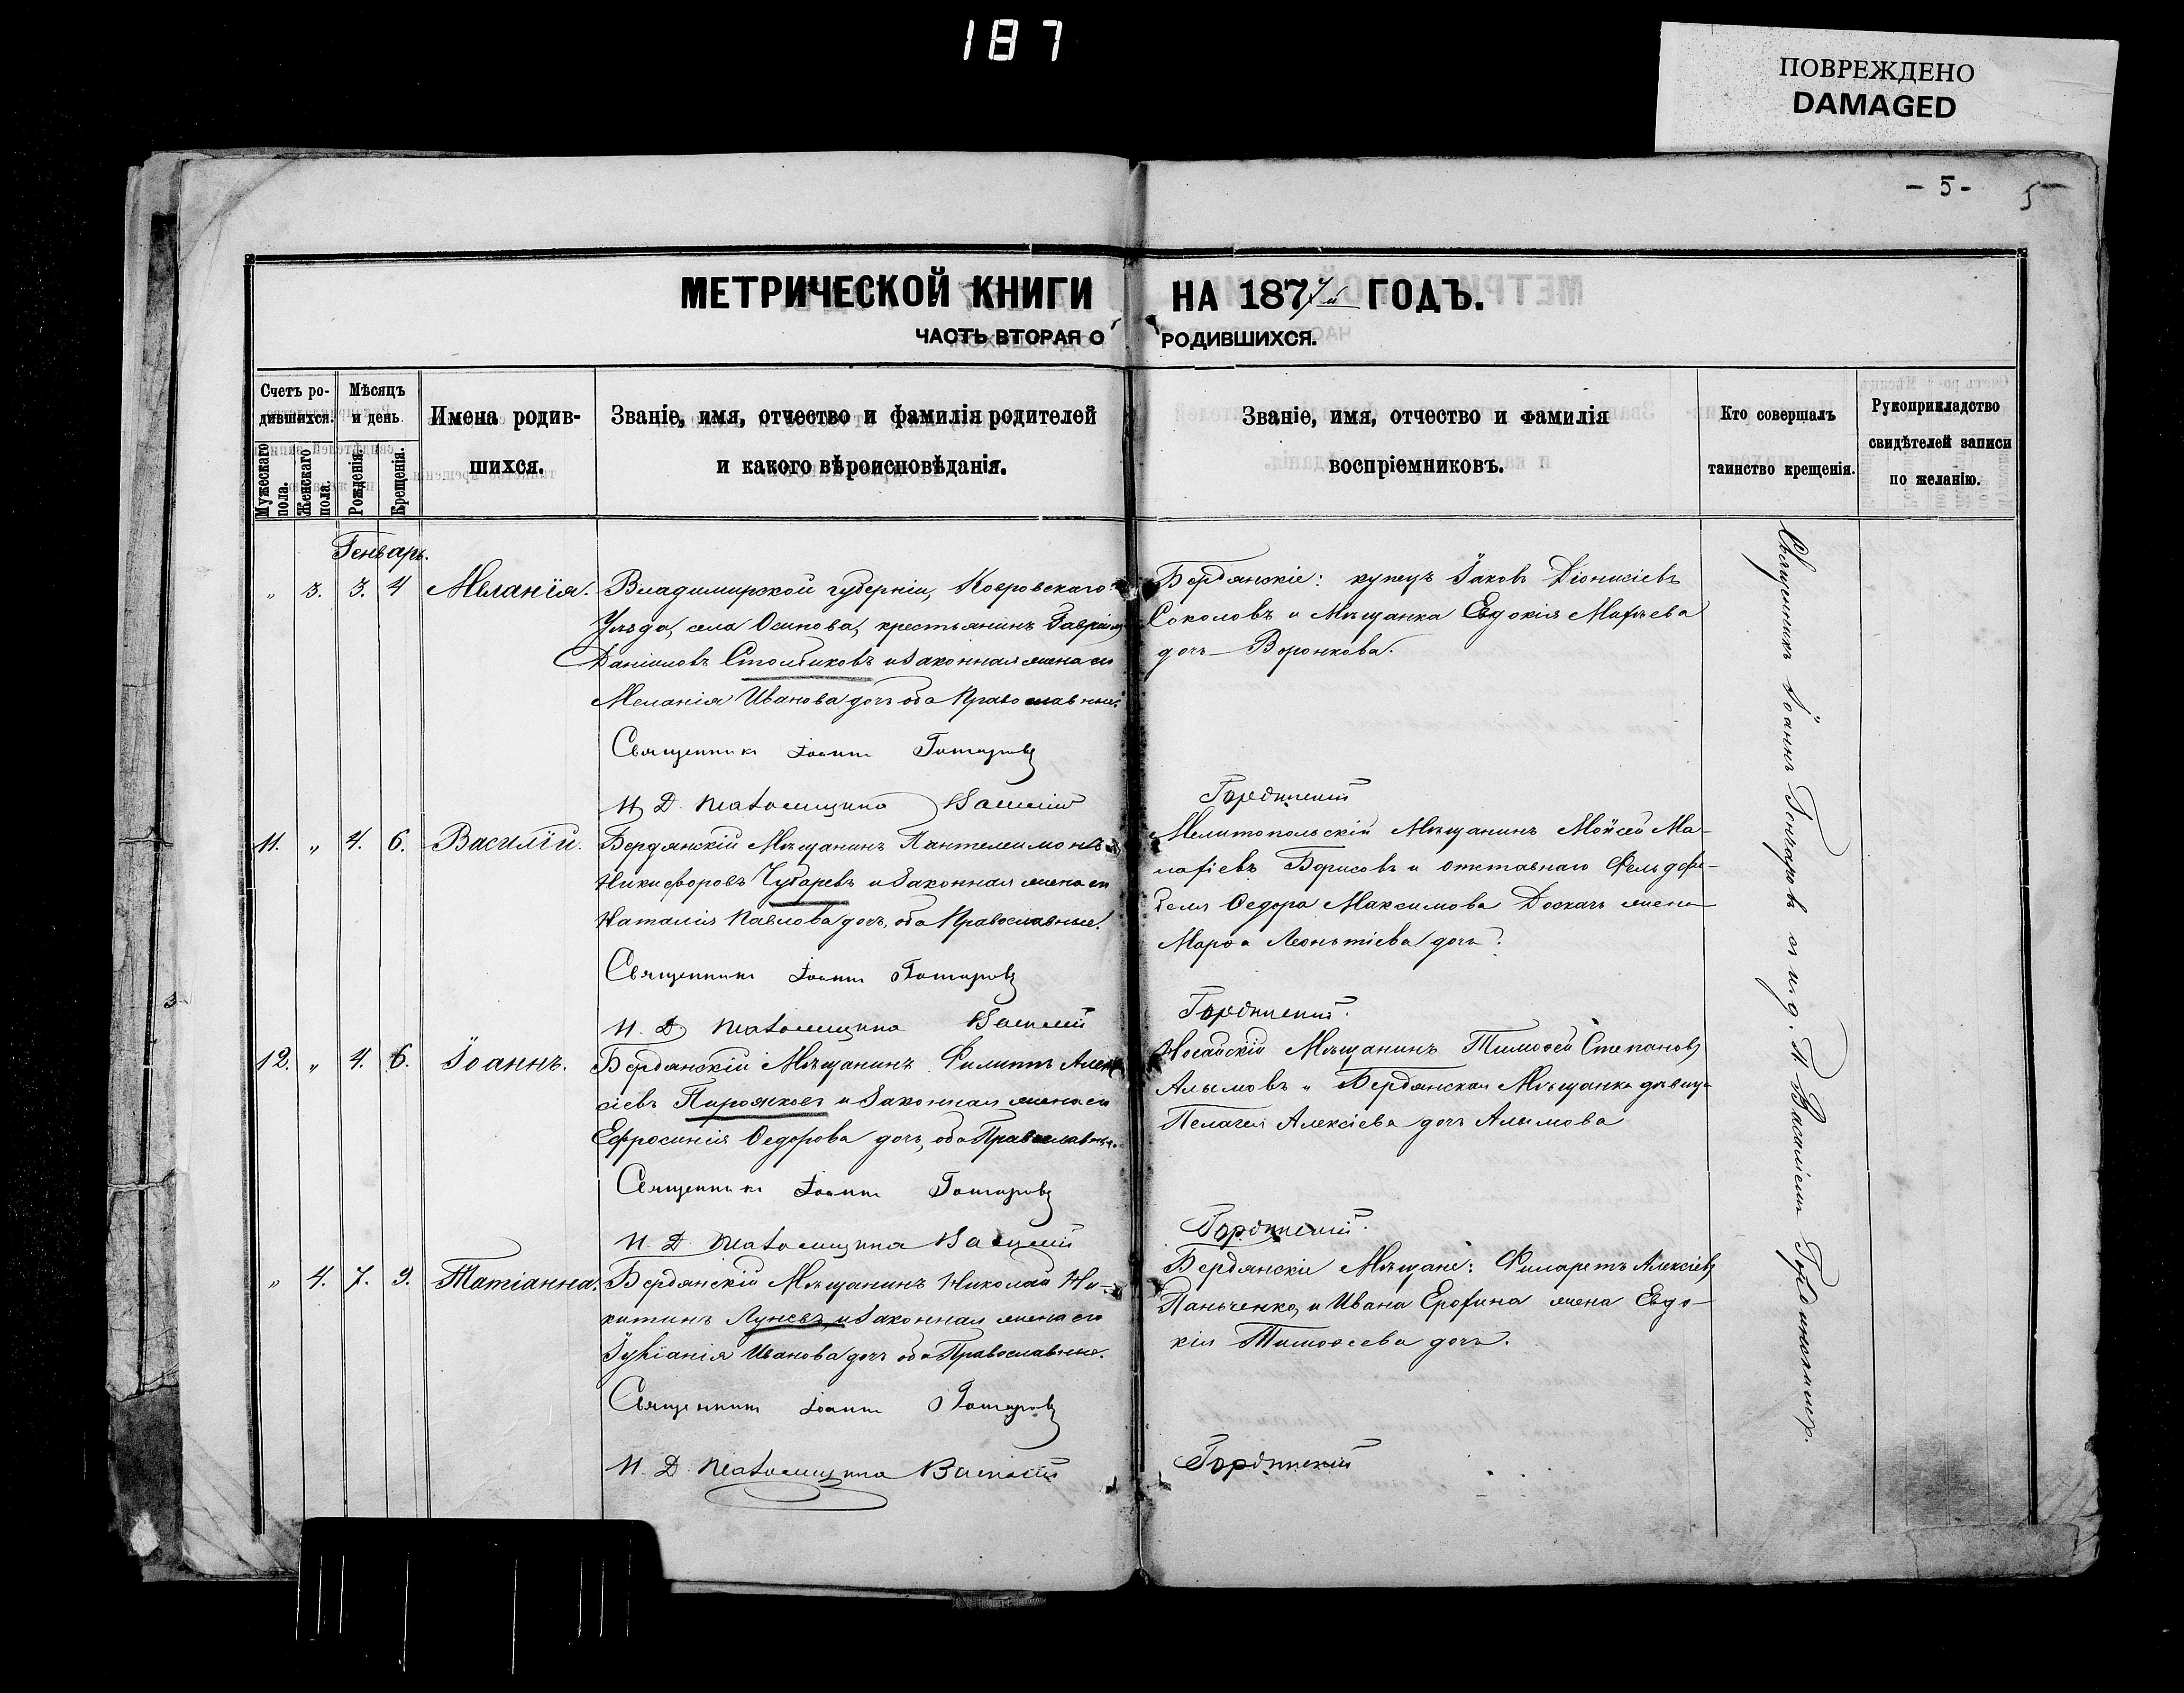 187
ПОВРЕЖДЕНО
DAMAGED
- 5 -
5
МЕТРИЧЕСКОЙ КНИГИ НА 1877й ГОДЪ.
ЧАСТЬ ВТОРАЯ О РОДИВШИХСЯ.
Счетъ родившихся.
Мужескаго пола.
Женскаго пола.
Мѣсяцъ и день
Рожденія.
Крещенія.
Имена родившихся.
Званіе, имя, отчество и фамилія родителей
и какого вѣроисповѣданія.
Званіе, имя, отчество и фамилія
воспріемниковъ.
Кто совершалъ
таинство крещенія.
Рукоприкладство
свидѣтелей записи
по желанію.
Генварь.
„ 3. 3. 4 Меланія.
Владимирской губерніи, Ковровскаго
Уѣзда, села Осинова, крестьянинъ Гавріилъ
Даніиловъ Столяиковъ и законная жена его
Меланія Иванова дочь оба Православные.
Священникъ Іоаннъ Гончаровъ
И. Д. Псаломщика Василій Гординскій
Бердянскіе: купецъ Іаковъ Діонисіевъ
Соколовъ и Мѣщанка Евдокія Матѳѣева
дочь Воронкова.
11. „ 4. 6. Василій.
Бердянскій Мѣщанинъ Пантелеимонъ
Никифоровъ Чубаревъ и законная жена его
Наталія Павлова дочь, оба Православные.
Священникъ Іоаннъ Гончаровъ
И. Д. Псаломщика Василій Гординскій.
Мелитопольскій Мѣщанинъ Моисей Ма-
лафіевъ Борисовъ и отставнаго Фельдфе-
беля Ѳедора Максимова Доскачь жена
Марѳа Леонтіева дочь.
12. „ 4. 6. Іоаннъ.
Бердянскій Мѣщанинъ Филиппъ Алек-
сіевъ Пирожковъ и законная жена его
Ефросинія Ѳедорова дочь, оба Православные.
Священникъ Іоаннъ Гончаровъ
И. Д. Псаломщика Василій Гординскій.
Ногайскій Мѣщанинъ Тимоѳей Степановъ
Алымовъ и Бердянская Мѣщанка дѣвица
Пелагея Алексіева дочь Алымова
„ 4. 7. 9. Татіанна.
Бердянскій Мѣщанинъ Николай Ни-
китинъ Луневъ, и законная жена его
Іуліанія Иванова дочь оба Православные.
Священникъ Іоаннъ Гончаровъ
И. Д. Псаломщика Василій Гординскій
Бердянскіе Мѣщане: Филаретъ Алексіевъ
Паньченко, и Ивана Ерофина жена Евдо-
кія Тимоѳеева дочь.
Священникъ Іоаннъ Гончаровъ съ и. д. П. Василіемъ Гординскимъ.